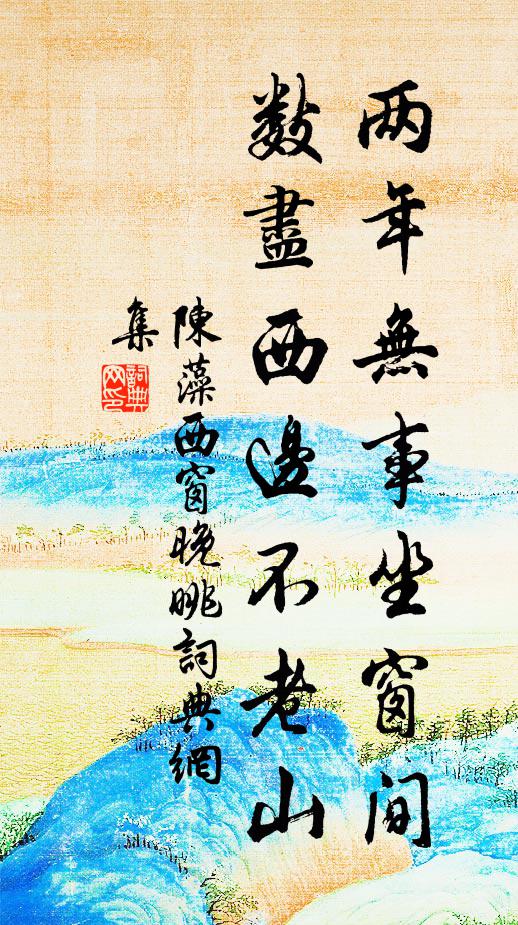 两年無事坐窗间
数盡西邊不老山
陳藻西窗晚眺詞典網
集
詞典网印